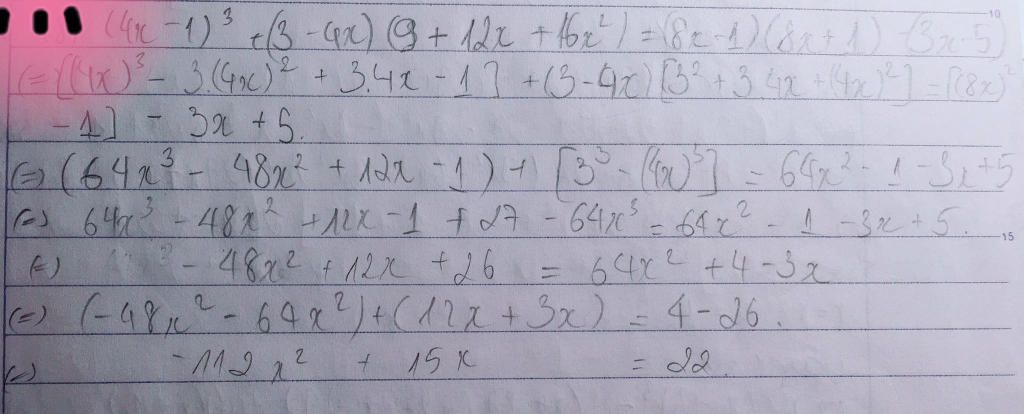 (4x - 1)³ + (3 - 4x)(9 + 12x + 16x²) = (8x - 1)(8x + 1) - (3x - 5)
(=) [(4x)³ - 3.(4x)² + 3.4x - 1] + (3 - 4x)[3² + 3.4x + (4x)²] = [(8x)²
- 1] - 3x + 5.
(=) (64x³ - 48x² + 12x - 1) + [3³ - (4x)³] = 64x² - 1 - 3x + 5
(=) 64x³ - 48x² + 12x - 1 + 27 - 64x³ = 64x² - 1 - 3x + 5.
(=) - 48x² + 12x + 26 = 64x² + 4 - 3x
(=) (-48x² - 64x²) + (12x + 3x) = 4 - 26.
(=) -112x² + 15x = 22.